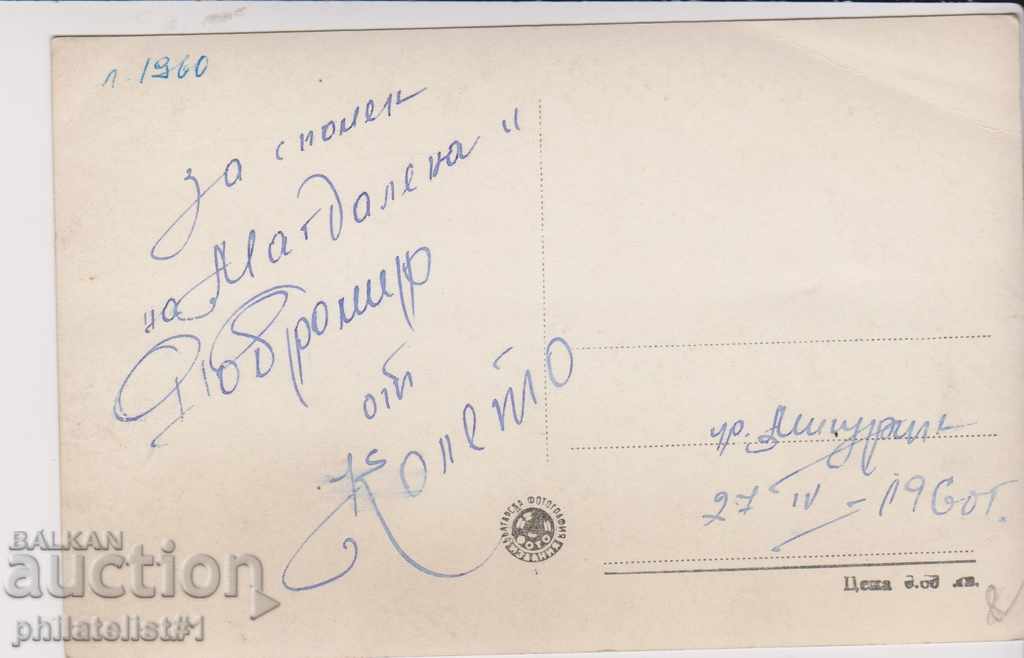 л. 1960
За спомен
на „Магдалена"
Добромир
от
Колето
гр. Мичурин
27 IV - 1960 г.
БЪЛГАРСКА ФОТОГРАФИЯ
ФОТО
ИЗДАНИЕ
Цена 0.00 лв.
BALKAN
auction
philatelist#1